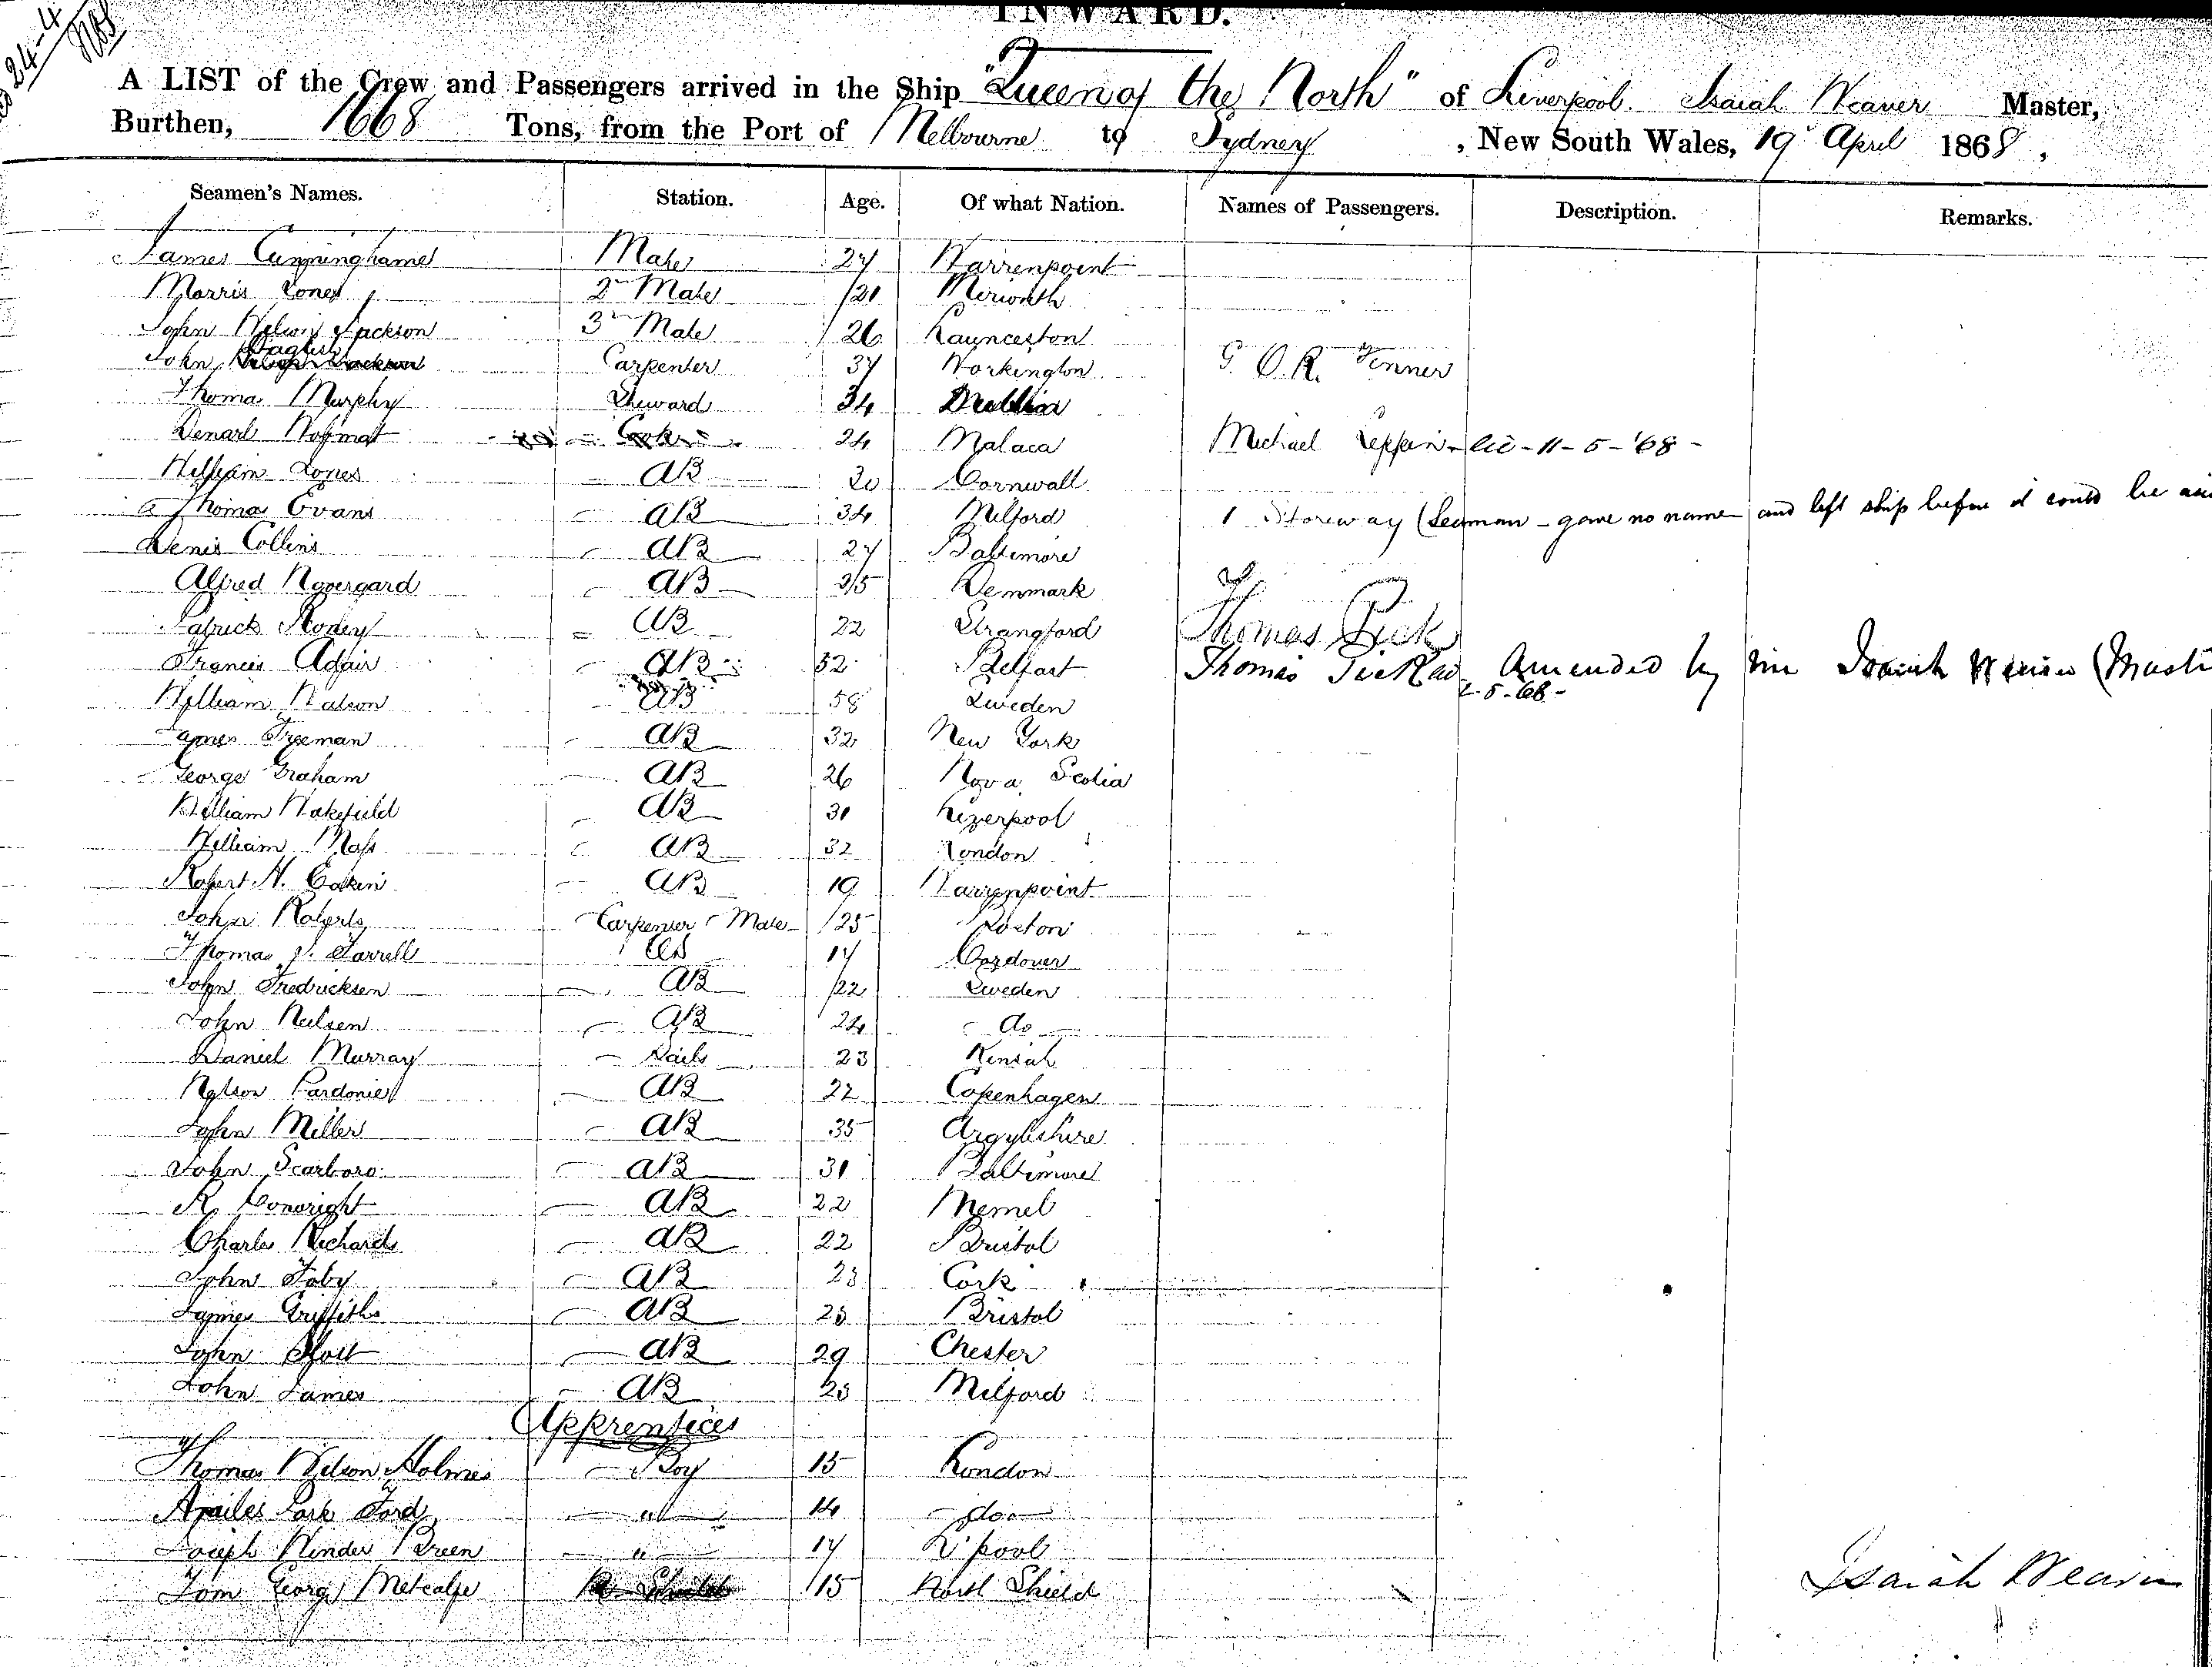 INWARD.
24-4
A LIST of the Crew and Passengers arrived in the Ship "Queen of the North" of Liverpool. Isaiah Weaver Master,
Burthen, 1668 Tons, from the Port of Melbourne to Sydney, New South Wales, 19 April 1868,
Seamen's Names. Station. Age. Of what Nation. Names of Passengers. Description. Remarks.
James Cunninghame Mate 27 Warrenpoint
Morris Jones 2nd Mate 21
John Jackson 3rd Mate 26 Launceston
John Carpenter 37 Workington G. O. R. Fenner
Thomas Murphy Steward 34 Dublin
Cook 24 Malaca Michael - 11-5-'68-
William Jones AB 20 Cornwall
Thomas Evans AB 34 Milford 1 Storeway (Seaman - gave no name and left ship before it could be
Denis Collins AB 27 Baltimore
Alfred AB 35 Denmark
Patrick AB 22 Strangford Thomas
Francis Adair AB 52 Belfast Thomas Amended by me Isaiah Weaver (Master
William Watson AB 58 Sweden 2-5-68-
James Freeman AB 32 New York
George Graham AB 26 Nova Scotia
William Wakefield AB 30 Liverpool
William Moss AB 32 London
Robert H. Eakin AB 19 Warrenpoint
John Roberts Carpenter Mate 25
Thomas J. Farrell 17
John Fredricksen AB 22 Sweden
John Neilsen AB 24 do
Daniel Murray Sails 23 Kinsale
Nelson AB 22 Copenhagen
John Miller AB 35 Argyleshire
John Scarboro AB 31 Baltimore
R. AB 22 Memel
Charles Richards AB 22 Bristol
John Toby AB 23 Cork
James Griffiths AB 25 Bristol
John AB 29 Chester
John James AB 25 Milford
Apprentices
Thomas Wilson Holmes Boy 15 London
Park Ford " 14 do
Joseph Green " 17 L'pool
Tom George Metcalfe 15 North Shield
Isaiah Weaver